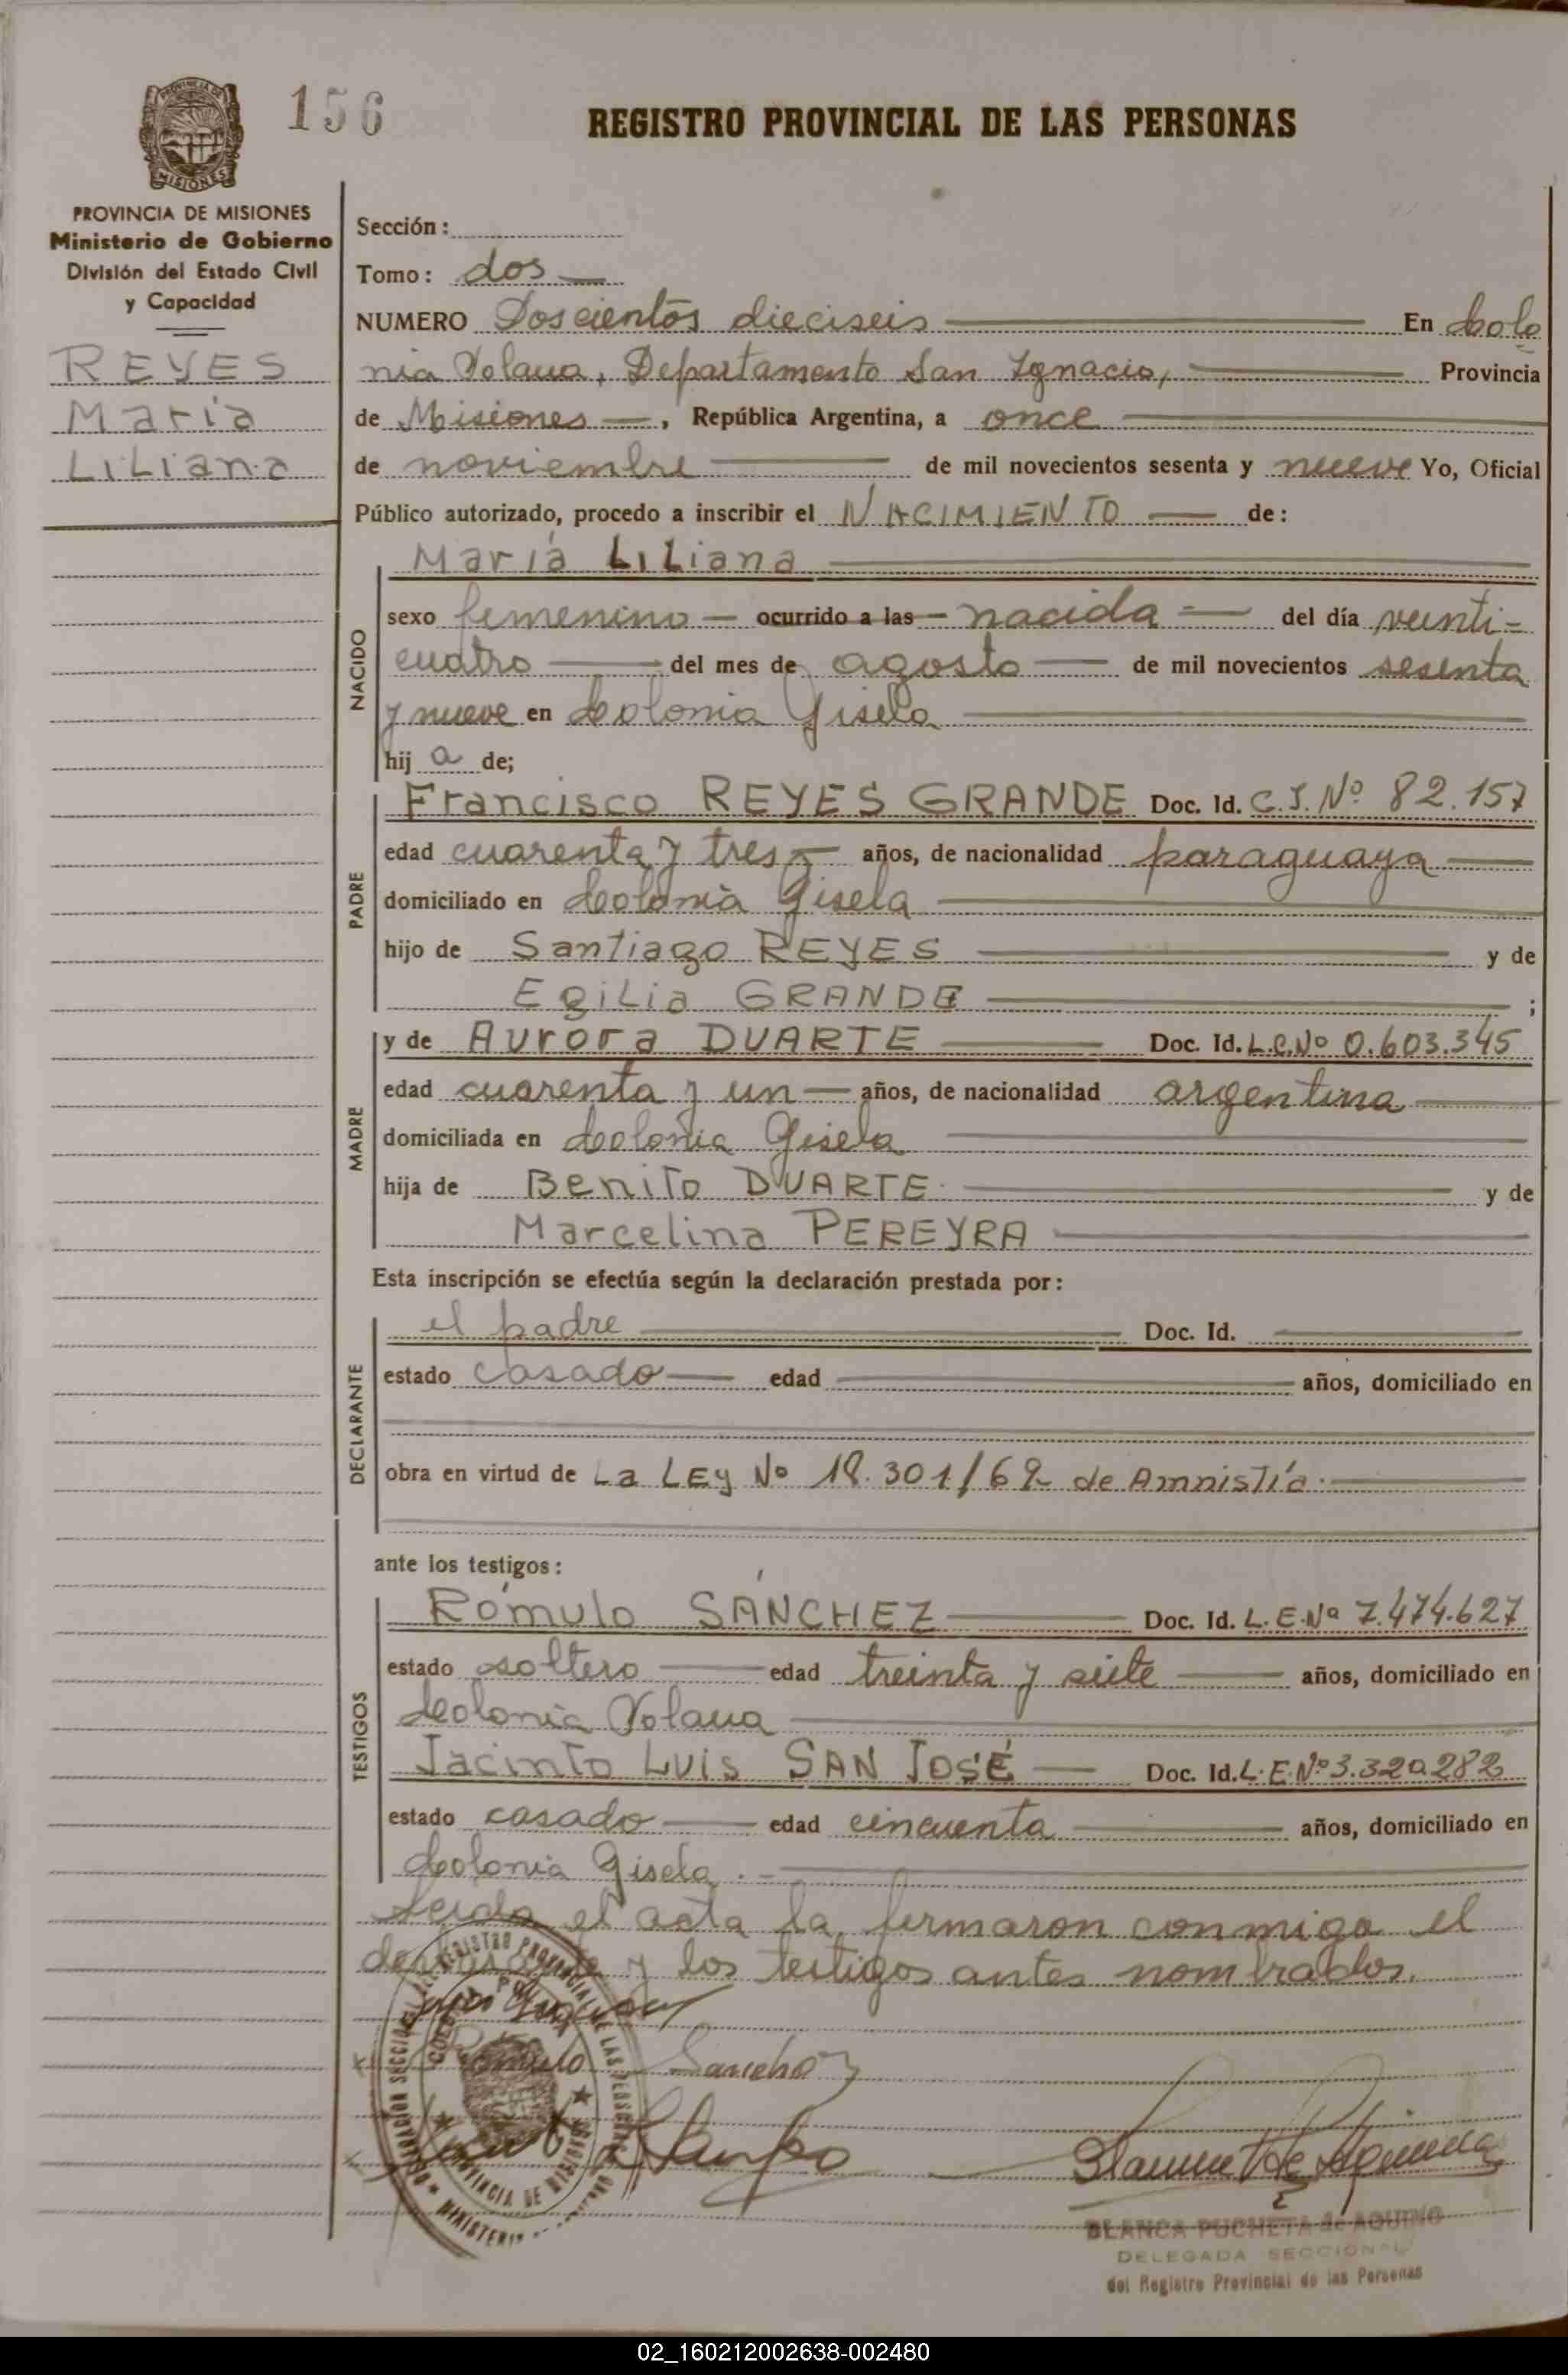 156
REGISTRO PROVINCIAL DE LAS PERSONAS
PROVINCIA DE MISIONES
MISIONES
PROVINCIA DE MISIONES
Ministerio de Gobierno
División del Estado Civil
y Capacidad
REYES
María
LiLiana
Sección:
Tomo: dos
NUMERO Doscientos dieciseis En Colo
nia Polana, Departamento San Ignacio, Provincia
de Misiones, República Argentina, a once
de noviembre de mil novecientos sesenta y nueve Yo, Oficial
Público autorizado, procedo a inscribir el NACIMIENTO de:
NACIDO
María LiLiana
sexo femenino ocurrido a las nacida del día veinti=
cuatro del mes de agosto de mil novecientos sesenta
y nueve en Colonia Gisela
hij a de;
PADRE
Francisco REYES GRANDE Doc. Id. C.I. Nº 82.157
edad cuarenta y tres años, de nacionalidad paraguaya
domiciliado en Colonia Gisela
hijo de Santiago REYES y de
EgiLia GRANDE ;
MADRE
y de Aurora DUARTE Doc. Id. L.C.Nº 0.603.345
edad cuarenta y un años, de nacionalidad argentina
domiciliada en Colonia Gisela
hija de Benito DUARTE y de
Marcelina PEREYRA
Esta inscripción se efectúa según la declaración prestada por:
DECLARANTE
el padre Doc. Id.
estado casado edad años, domiciliado en
obra en virtud de La LEy Nº 18.301/69 de Amnistía.
ante los testigos:
TESTIGOS
Rómulo SÁNCHEZ Doc. Id. L.E.Nº 7.474.627
estado soltero edad treinta y siete años, domiciliado en
Colonia Polana
Jacinto Luis SAN JOSÉ Doc. Id. L.E.Nº 3.320.282
estado casado edad cincuenta años, domiciliado en
Colonia Gisela.
Leida el acta la firmaron conmigo el
declarante y los testigos antes nombrados.
Romulo Sanchez
BLANCA PUCHETA de AQUINO
DELEGADA SECCIONAL
del Registro Provincial de las Personas
02_160212002638-002480